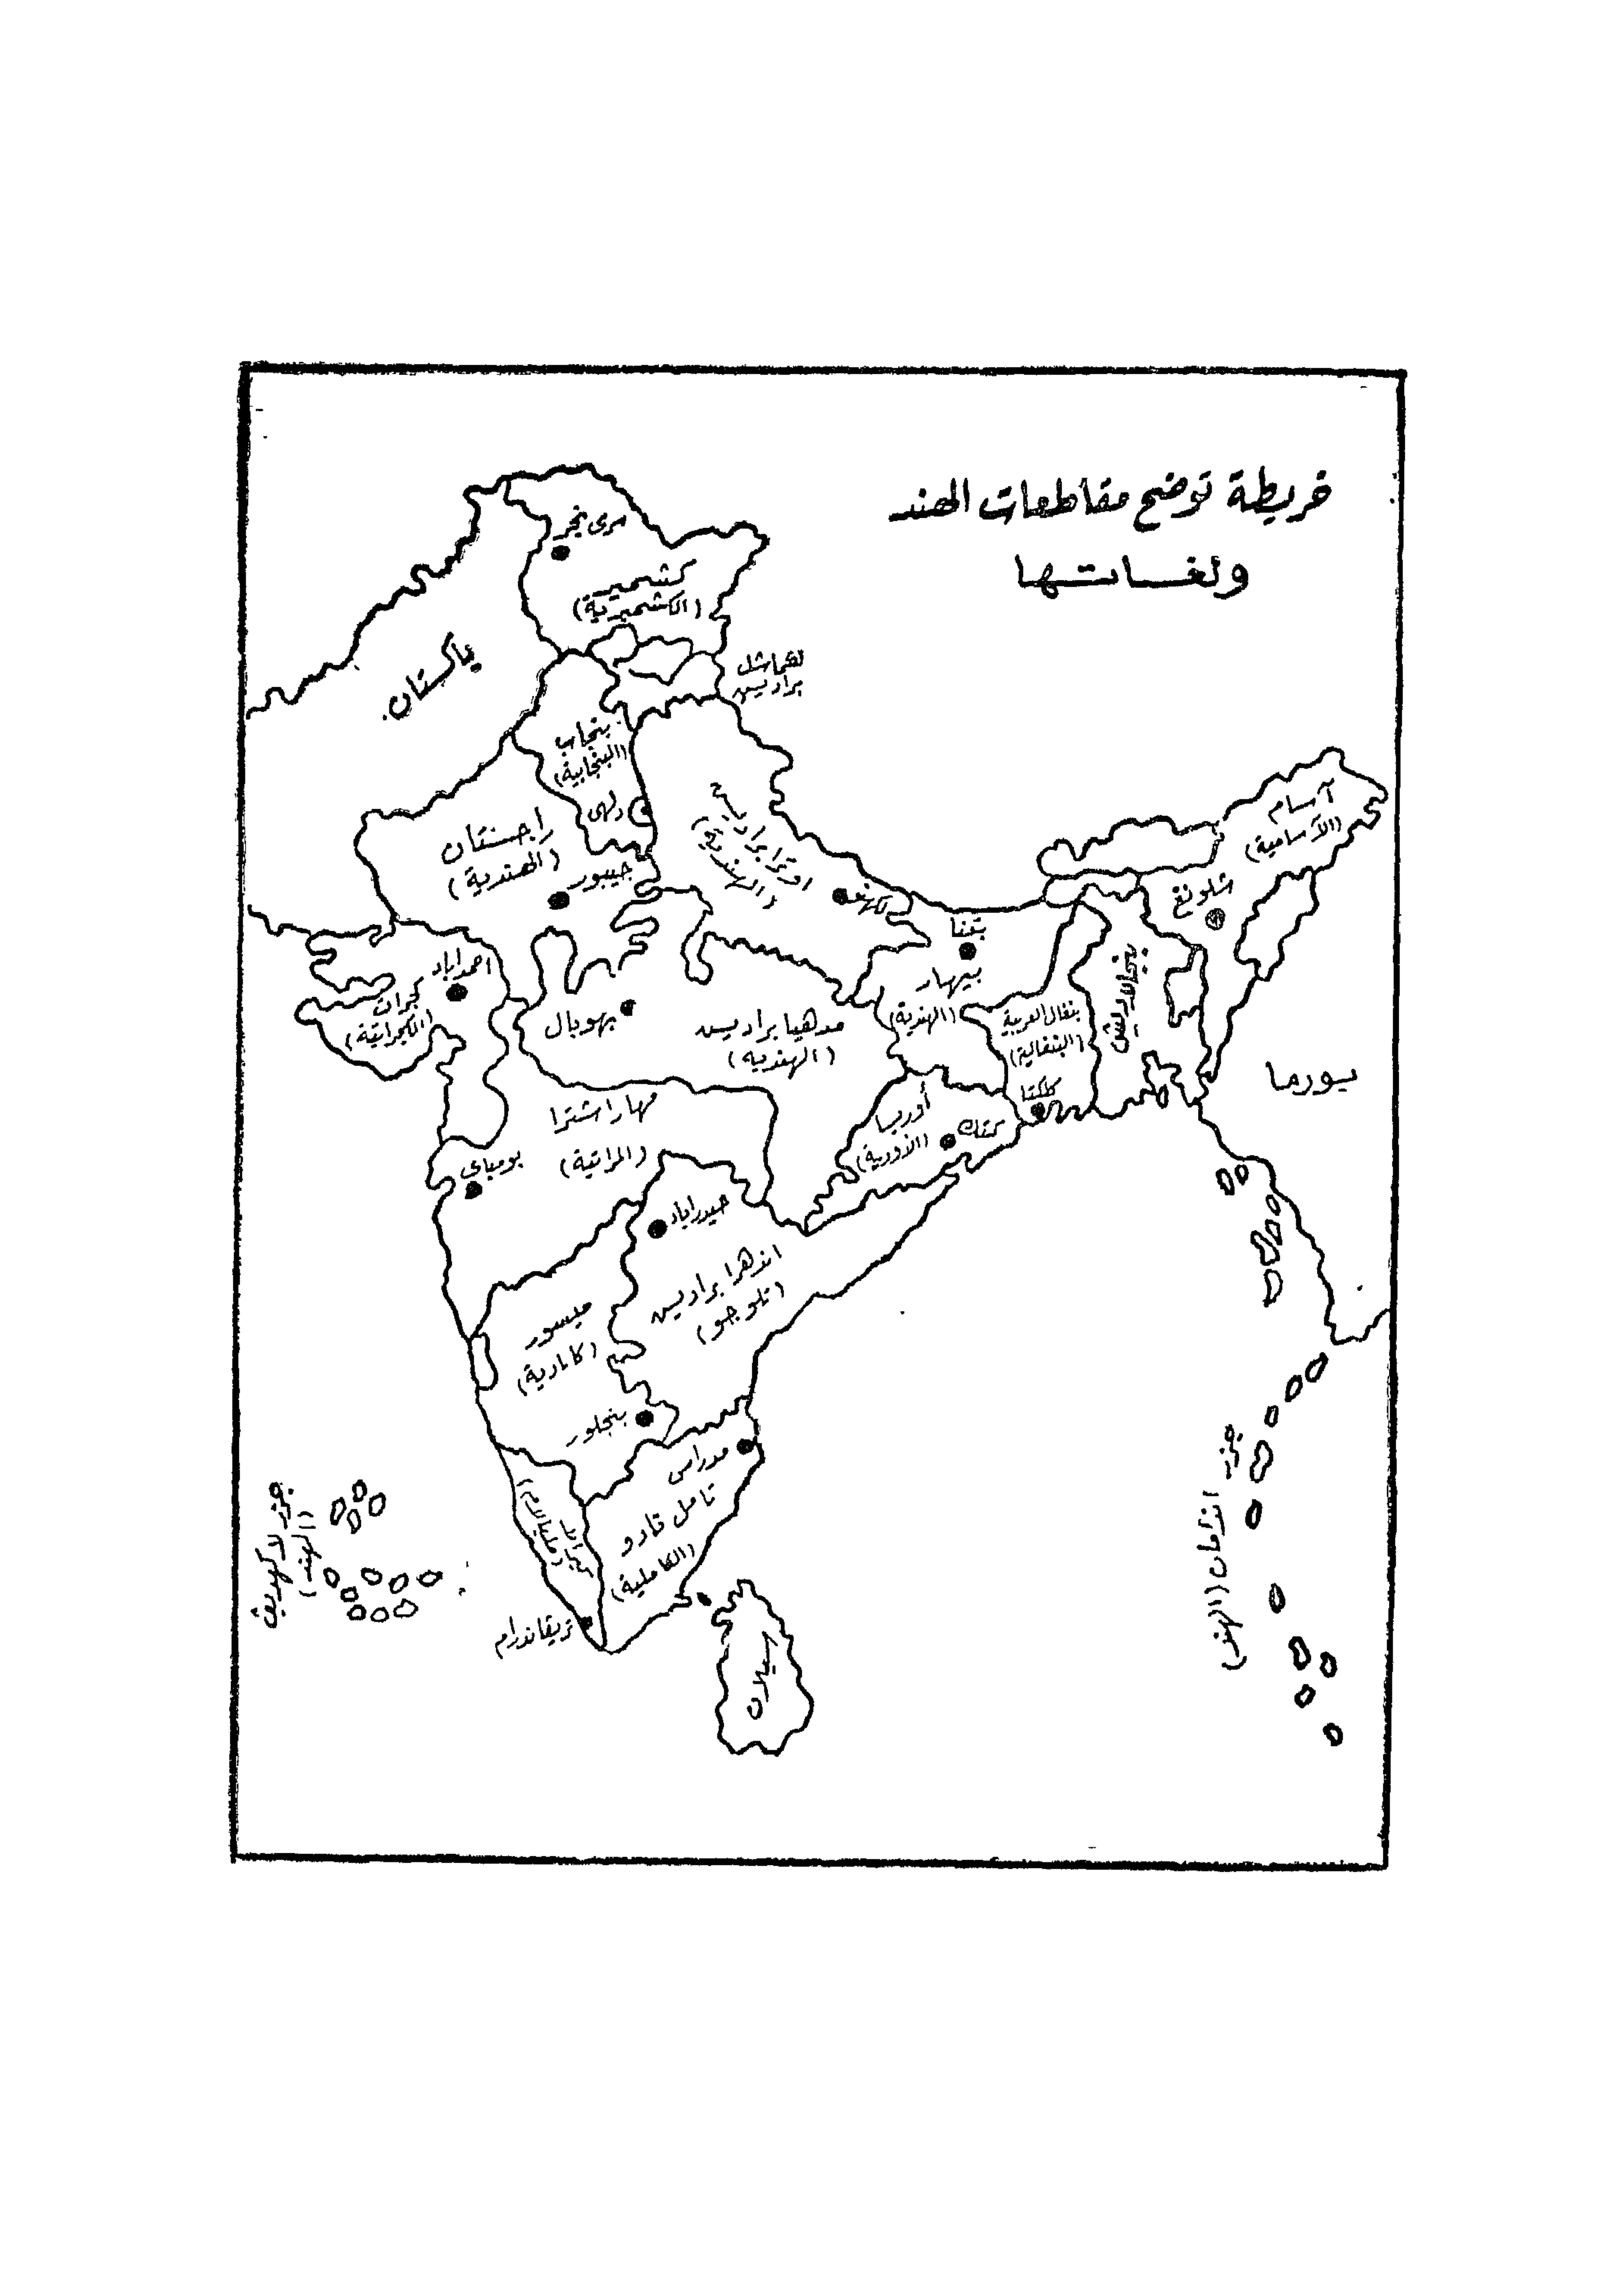 خريطة توضح مقاطعات الهند
ولغساتها
سرى نجر
كشمير
(الكشميرية)
باكستان
هيماشل
براديس
بنجاب
(البنجابية)
دلهى
راجستان
(الهندية)
جيبور
اوترا براديس
(الهندية)
لكهنو
آسام
(الآسامية)
شلونغ
بتنا
بيهار
(الهندية)
بنجلاديش
بنغال الغربية
(البنغالية)
كلكتا
بورما
احمداباد
كجرات
(الكجراتية)
بهوبال
مدهيا براديس
(الهندية)
أوريسا
(الأورية)
كتك
مهاراشترا
(المراتية)
بومباى
حيدراباد
اندهرا براديس
(تلوجو)
ميسور
(كانادية)
بنجلور
مدراس
تامل نادو
(الكاملية)
تريفاندرام
سيلان
جزر لاكهديف
(الهند)
جزر اندامان (الهند)